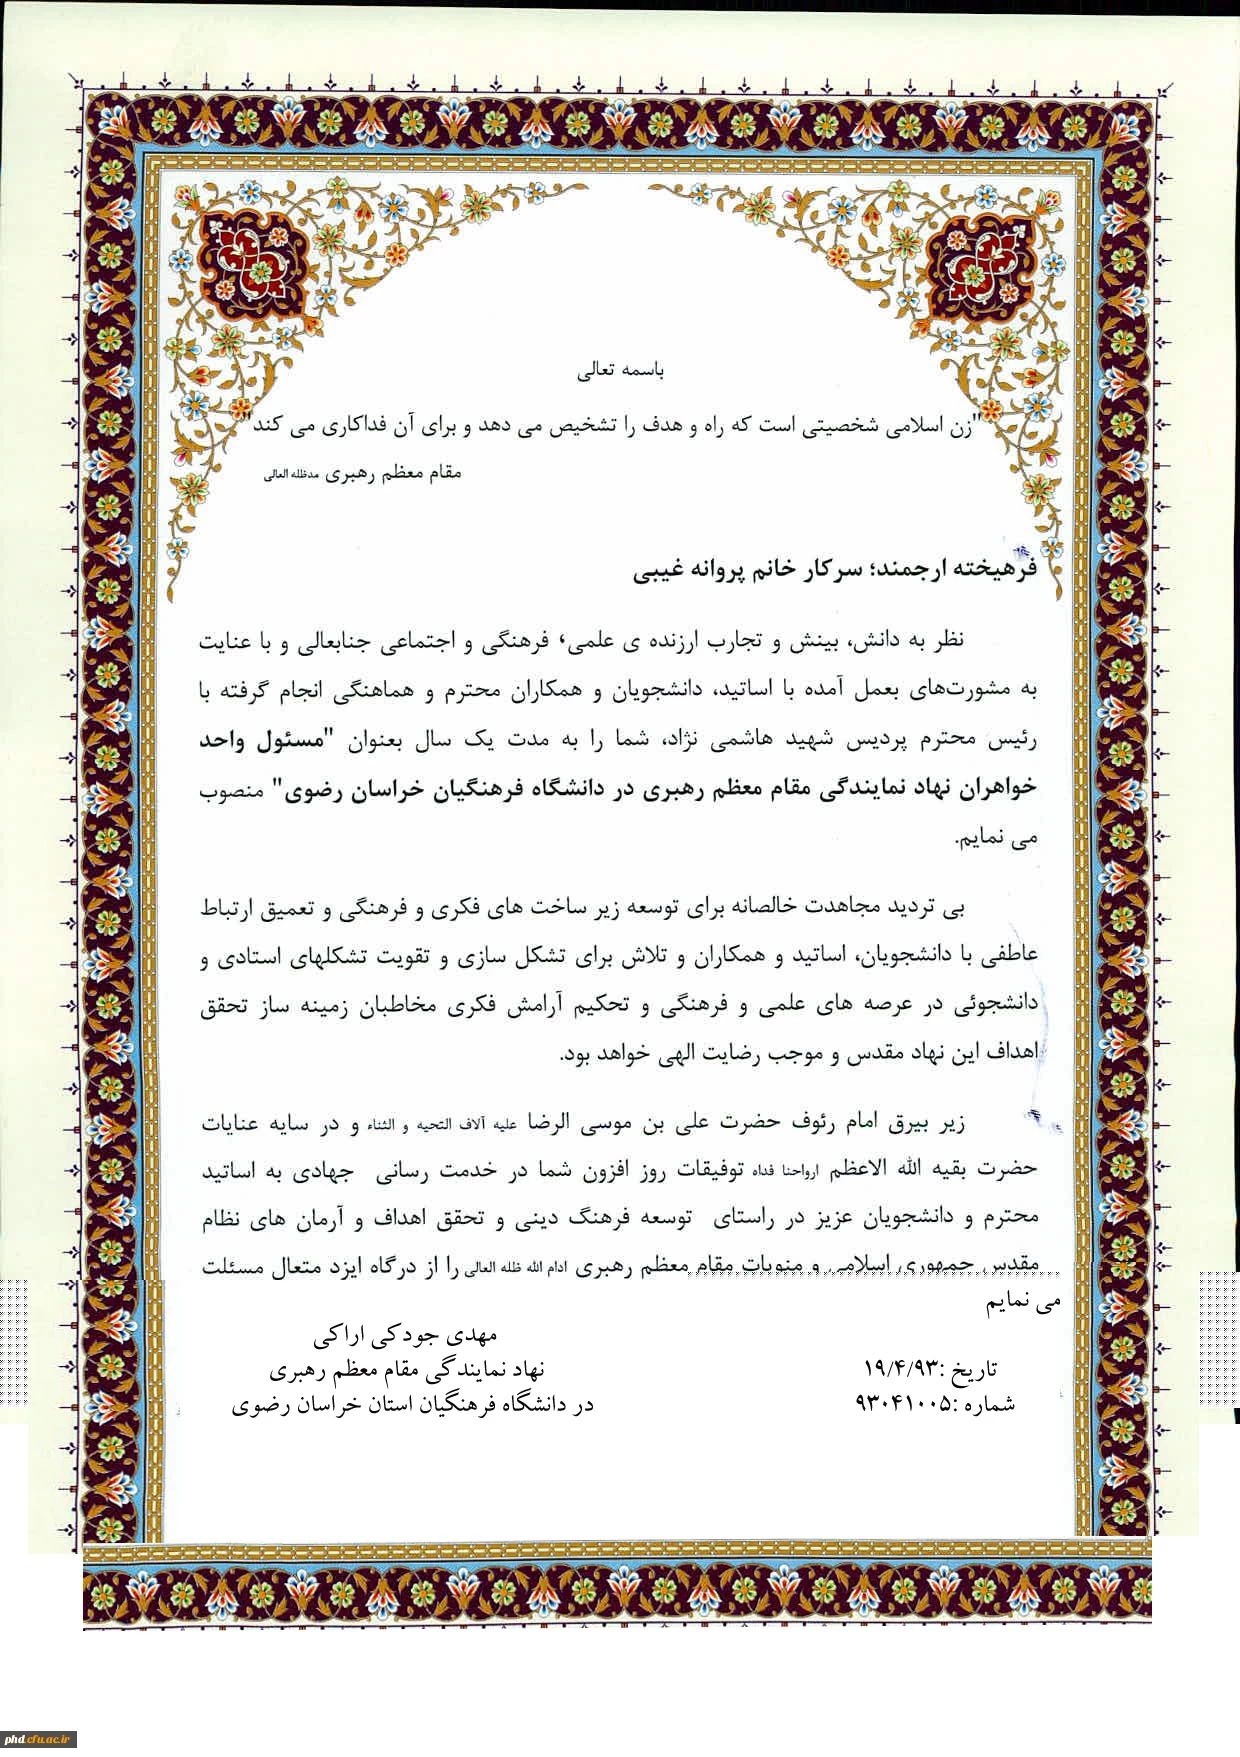 باسمه تعالی
"زن اسلامی شخصیتی است که راه و هدف را تشخیص می دهد و برای آن فداکاری می کند"
مقام معظم رهبری مدظله العالی
فرهیخته ارجمند؛ سرکار خانم پروانه غیبی
نظر به دانش، بینش و تجارب ارزنده ی علمی، فرهنگی و اجتماعی جنابعالی و با عنایت
به مشورت‌های بعمل آمده با اساتید، دانشجویان و همکاران محترم و هماهنگی انجام گرفته با
رئیس محترم پردیس شهید هاشمی نژاد، شما را به مدت یک سال بعنوان "مسئول واحد
خواهران نهاد نمایندگی مقام معظم رهبری در دانشگاه فرهنگیان خراسان رضوی" منصوب
می نمایم.
بی تردید مجاهدت خالصانه برای توسعه زیر ساخت های فکری و فرهنگی و تعمیق ارتباط
عاطفی با دانشجویان، اساتید و همکاران و تلاش برای تشکل سازی و تقویت تشکلهای استادی و
دانشجوئی در عرصه های علمی و فرهنگی و تحکیم آرامش فکری مخاطبان زمینه ساز تحقق
اهداف این نهاد مقدس و موجب رضایت الهی خواهد بود.
زیر بیرق امام رئوف حضرت علی بن موسی الرضا علیه آلاف التحیه و الثناء و در سایه عنایات
حضرت بقیه الله الاعظم ارواحنا فداه توفیقات روز افزون شما در خدمت رسانی جهادی به اساتید
محترم و دانشجویان عزیز در راستای توسعه فرهنگ دینی و تحقق اهداف و آرمان های نظام
مقدس جمهوری اسلامی و منویات مقام معظم رهبری ادام الله ظله العالی را از درگاه ایزد متعال مسئلت
می نمایم
مهدی جودکی اراکی
تاریخ :۱۹/۴/۹۳ نهاد نمایندگی مقام معظم رهبری
شماره :۹۳۰۴۱۰۰۵ در دانشگاه فرهنگیان استان خراسان رضوی
phd.cfu.ac.ir